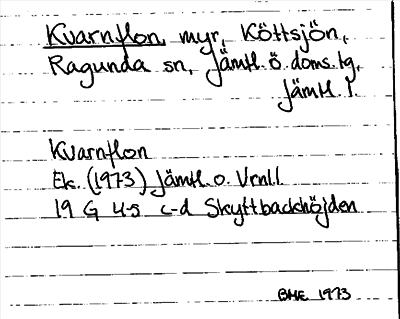 Kvarnflon, myr, Köttsjön,
Ragunda sn, Jämtl. ö. doms. tg,
Jämtl. l.
Kvarnflon
Ek. (1973) Jämtl. o. Vrnl.l.
19 G 4-5 c-d Skyttbackhöjden
BME 1973